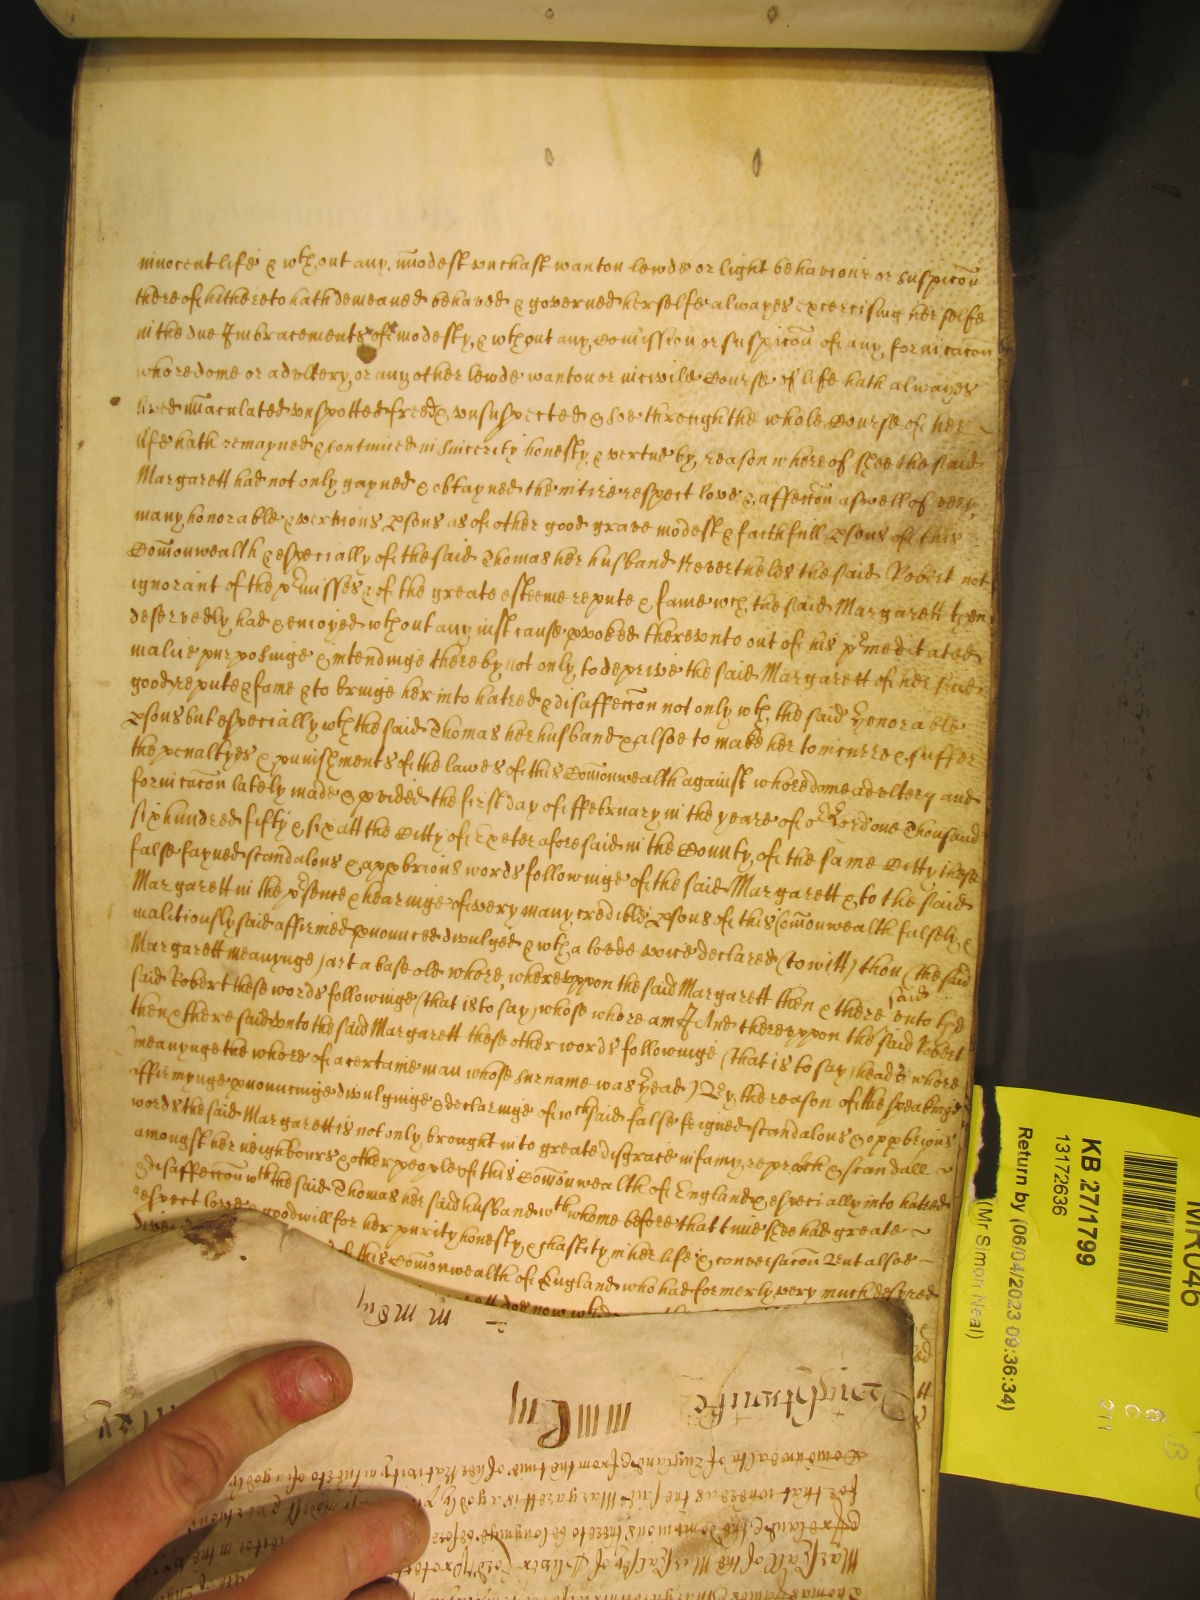 innocent life & wth out any im̅odest vnchast wanton lewde or light behaviour or suspic̅on
thereof hithereto hath demeaned behaved & governed herselfe alwayes excercising her selfe
in the due Imbracements of modesty & wth out any Com̅ission or suspic̅on of any fornicac̅on
whoredome or adultery or any other lewde wanton or incivile Course of life hath alwayes
lived im̅aculated vnspotted freed & vnsuspected & soe through the whole Course of her
life hath remayned & continued in sincerity honesty & vertue by reason whereof shee the said
Margarett had not only gayned & obtayned the intire respect love & affecc̅on aswell of very
many honorable & vertuous psons as of other good grave modest & faithfull psons of this
Com̅onwealth & especially of the said Thomas her husband Neverthelés the said Robert not
ignorant of the pr̅misses & of the greate esteeme repute & fame wch the said Margarett then
deservedly had & enioyed wth out any iust cause pvoked therevnto out of his pr̅meditated
malice purposinge & intendinge thereby not only to deprive the said Margarett of her said
good repute & fame & to bringe her into hatred & disaffecc̅on not only wth the said honorable
psons but especially wth the said Thomas her husband & alsoe to make her to incurre & suffer
the penaltyes & punishments of the lawes of this Com̅onwealth against whoredome adultery and
fornicac̅on lately made & pvided the first day of ffebruary in the yeare of or Lord one Thousand
six hundred fifty & six att the Citty of Exeter aforesaid in the County of the same Citty these
false fayned scandalous & opprbrious words followinge of the said Margarett & to the said
Margarett in the pr̅sence & hearinge of very many credible psons of this Com̅onwealth falsely &
malitiously said affirmed pnounced divulged & wth a lowde voice declared (to witt) thou (the said
Margarett meanynge) art a base old whore, wherevppon the said Margarett then & there said vnto the
said Robert these words followinge (that is to say) whose whore am I And therevppon the said Robert
then & there said vnto the said Margarett these other words followinge (that is to say) heads whore
meanynge the whore of a certaine man whose surname was head) By the reason of the speakinge
affirmynge pnouncinge divulginge & declaringe of wch said false feigned scandalous & opprbrious
words the said Margarett is not only brought into greate disgrace infamy reproach & scandall
amongst her neighbours & other people of this Com̅onwealth of England & especially into hatred
& disaffecc̅on wth the said Thomas her said husband wth whome before that time shee had greate
respect love & goodwill for her purity honesty & chastity in her life & conversac̅on But alsoe
this Com̅onwealth of England who had formerly very much desired
doe now
MR046
KB 27/1799
13172636
Return by (06/04/2023 09:36:34)
(Mr Simon Neal)